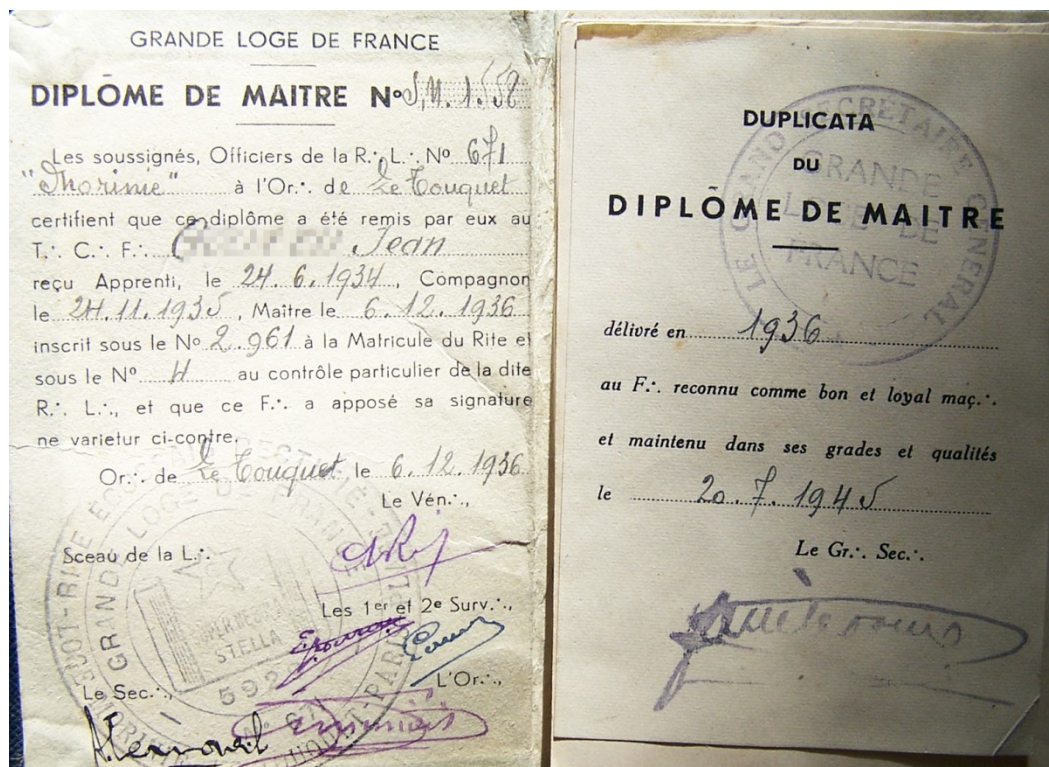 GRANDE LOGE DE FRANCE
DIPLÔME DE MAITRE No S.N. 1.558
Les soussignés, Officiers de la R∴ L∴ No 671
"Thorinie" à l'Or∴ de Le Touquet
certifient que ce diplôme a été remis par eux au
T∴ C∴ F∴ Jean
reçu Apprenti, le 24.6.1934, Compagnon
le 24.11.1935, Maître le 6.12.1936
inscrit sous le No 2.961 à la Matricule du Rite et
sous le No 4 au contrôle particulier de la dite
R∴ L∴, et que ce F∴ a apposé sa signature
ne varietur ci-contre.
Or∴ de Le Touquet, le 6.12.1936
Le Vén∴,
Sceau de la L∴
Les 1er et 2e Surv∴,
STELLA
592
Le Sec∴,
L'Or∴,
DUPLICATA
DU
DIPLÔME DE MAITRE
LE GRAND SECRÉTAIRE GÉNÉRAL
GRANDE
LOGE DE
FRANCE
délivré en 1936
au F∴ reconnu comme bon et loyal maç∴
et maintenu dans ses grades et qualités
le 20.7.1945
Le Gr∴ Sec∴